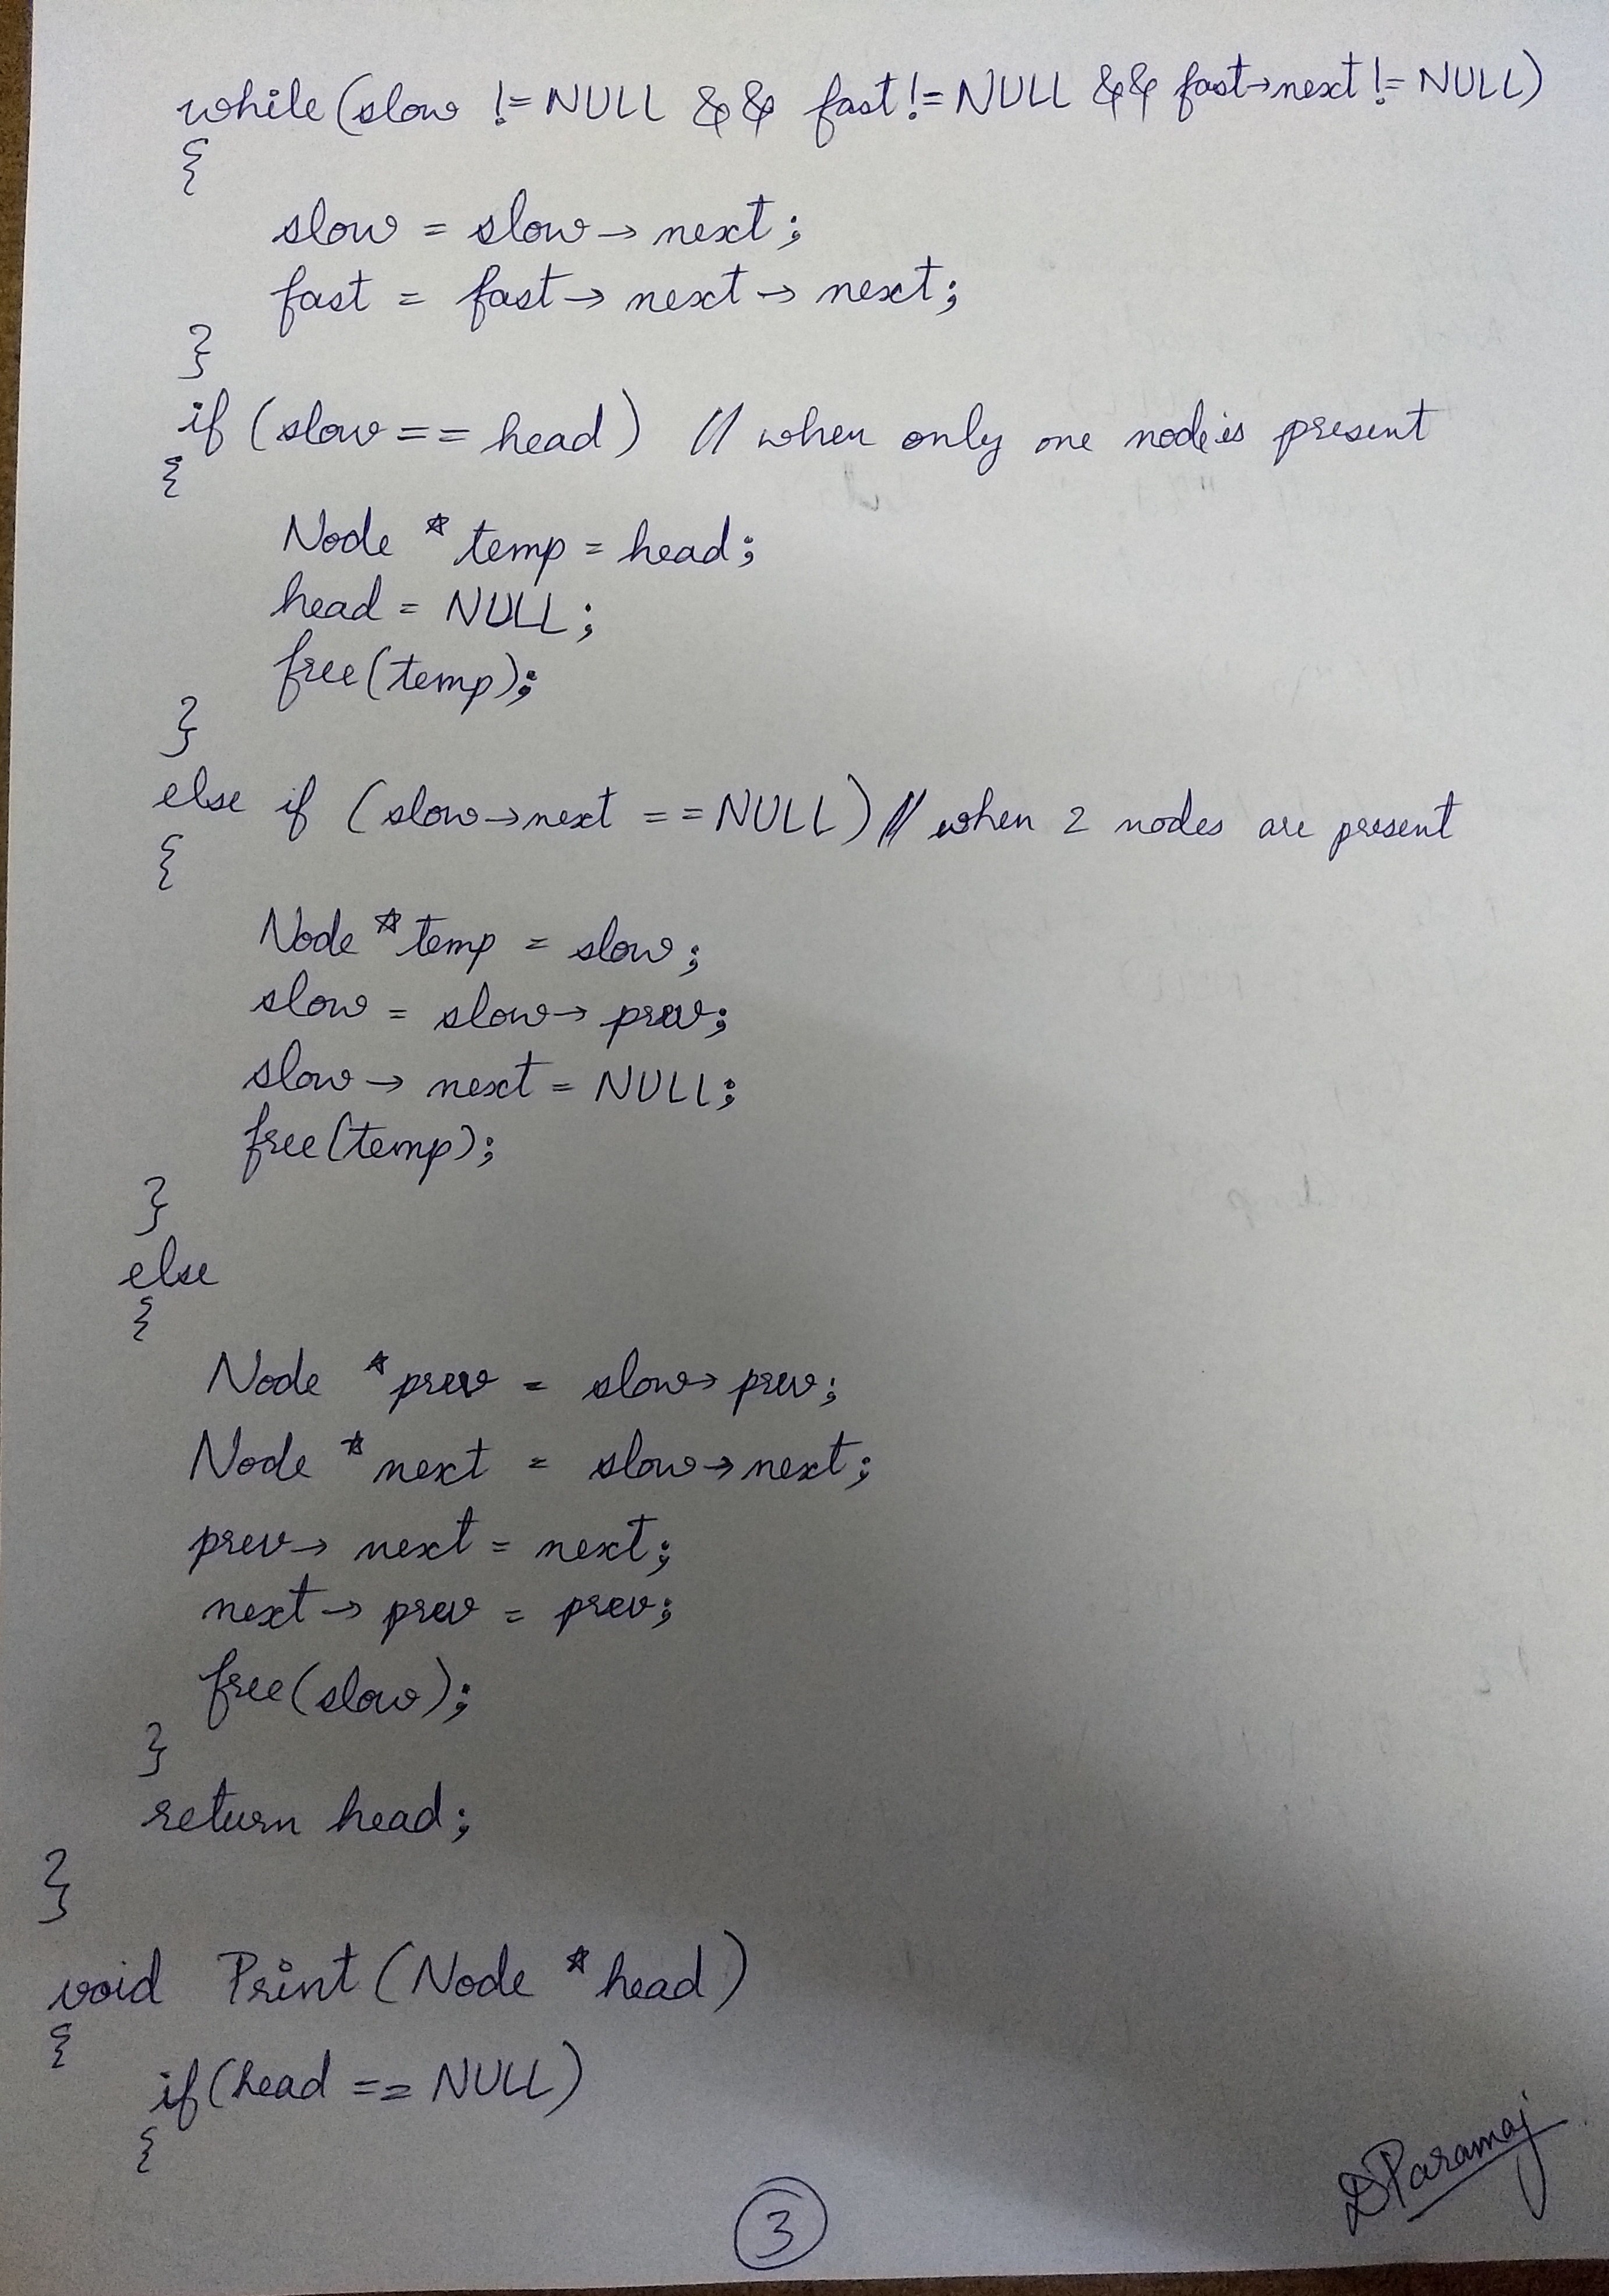 while(slow != NULL && fast != NULL && fast→next != NULL)
{
slow = slow → next;
fast = fast → next → next;
}
if (slow == head) // when only one node is present
{
Node * temp = head;
head = NULL;
free(temp);
}
else if (slow→next == NULL) // when 2 nodes are present
{
Node * temp = slow;
slow = slow → prev;
slow → next = NULL;
free(temp);
}
else
{
Node * prev = slow → prev;
Node * next = slow → next;
prev → next = next;
next → prev = prev;
free(slow);
}
return head;
}
void Print (Node * head)
{
if(head == NULL)
{
3
DParamaj